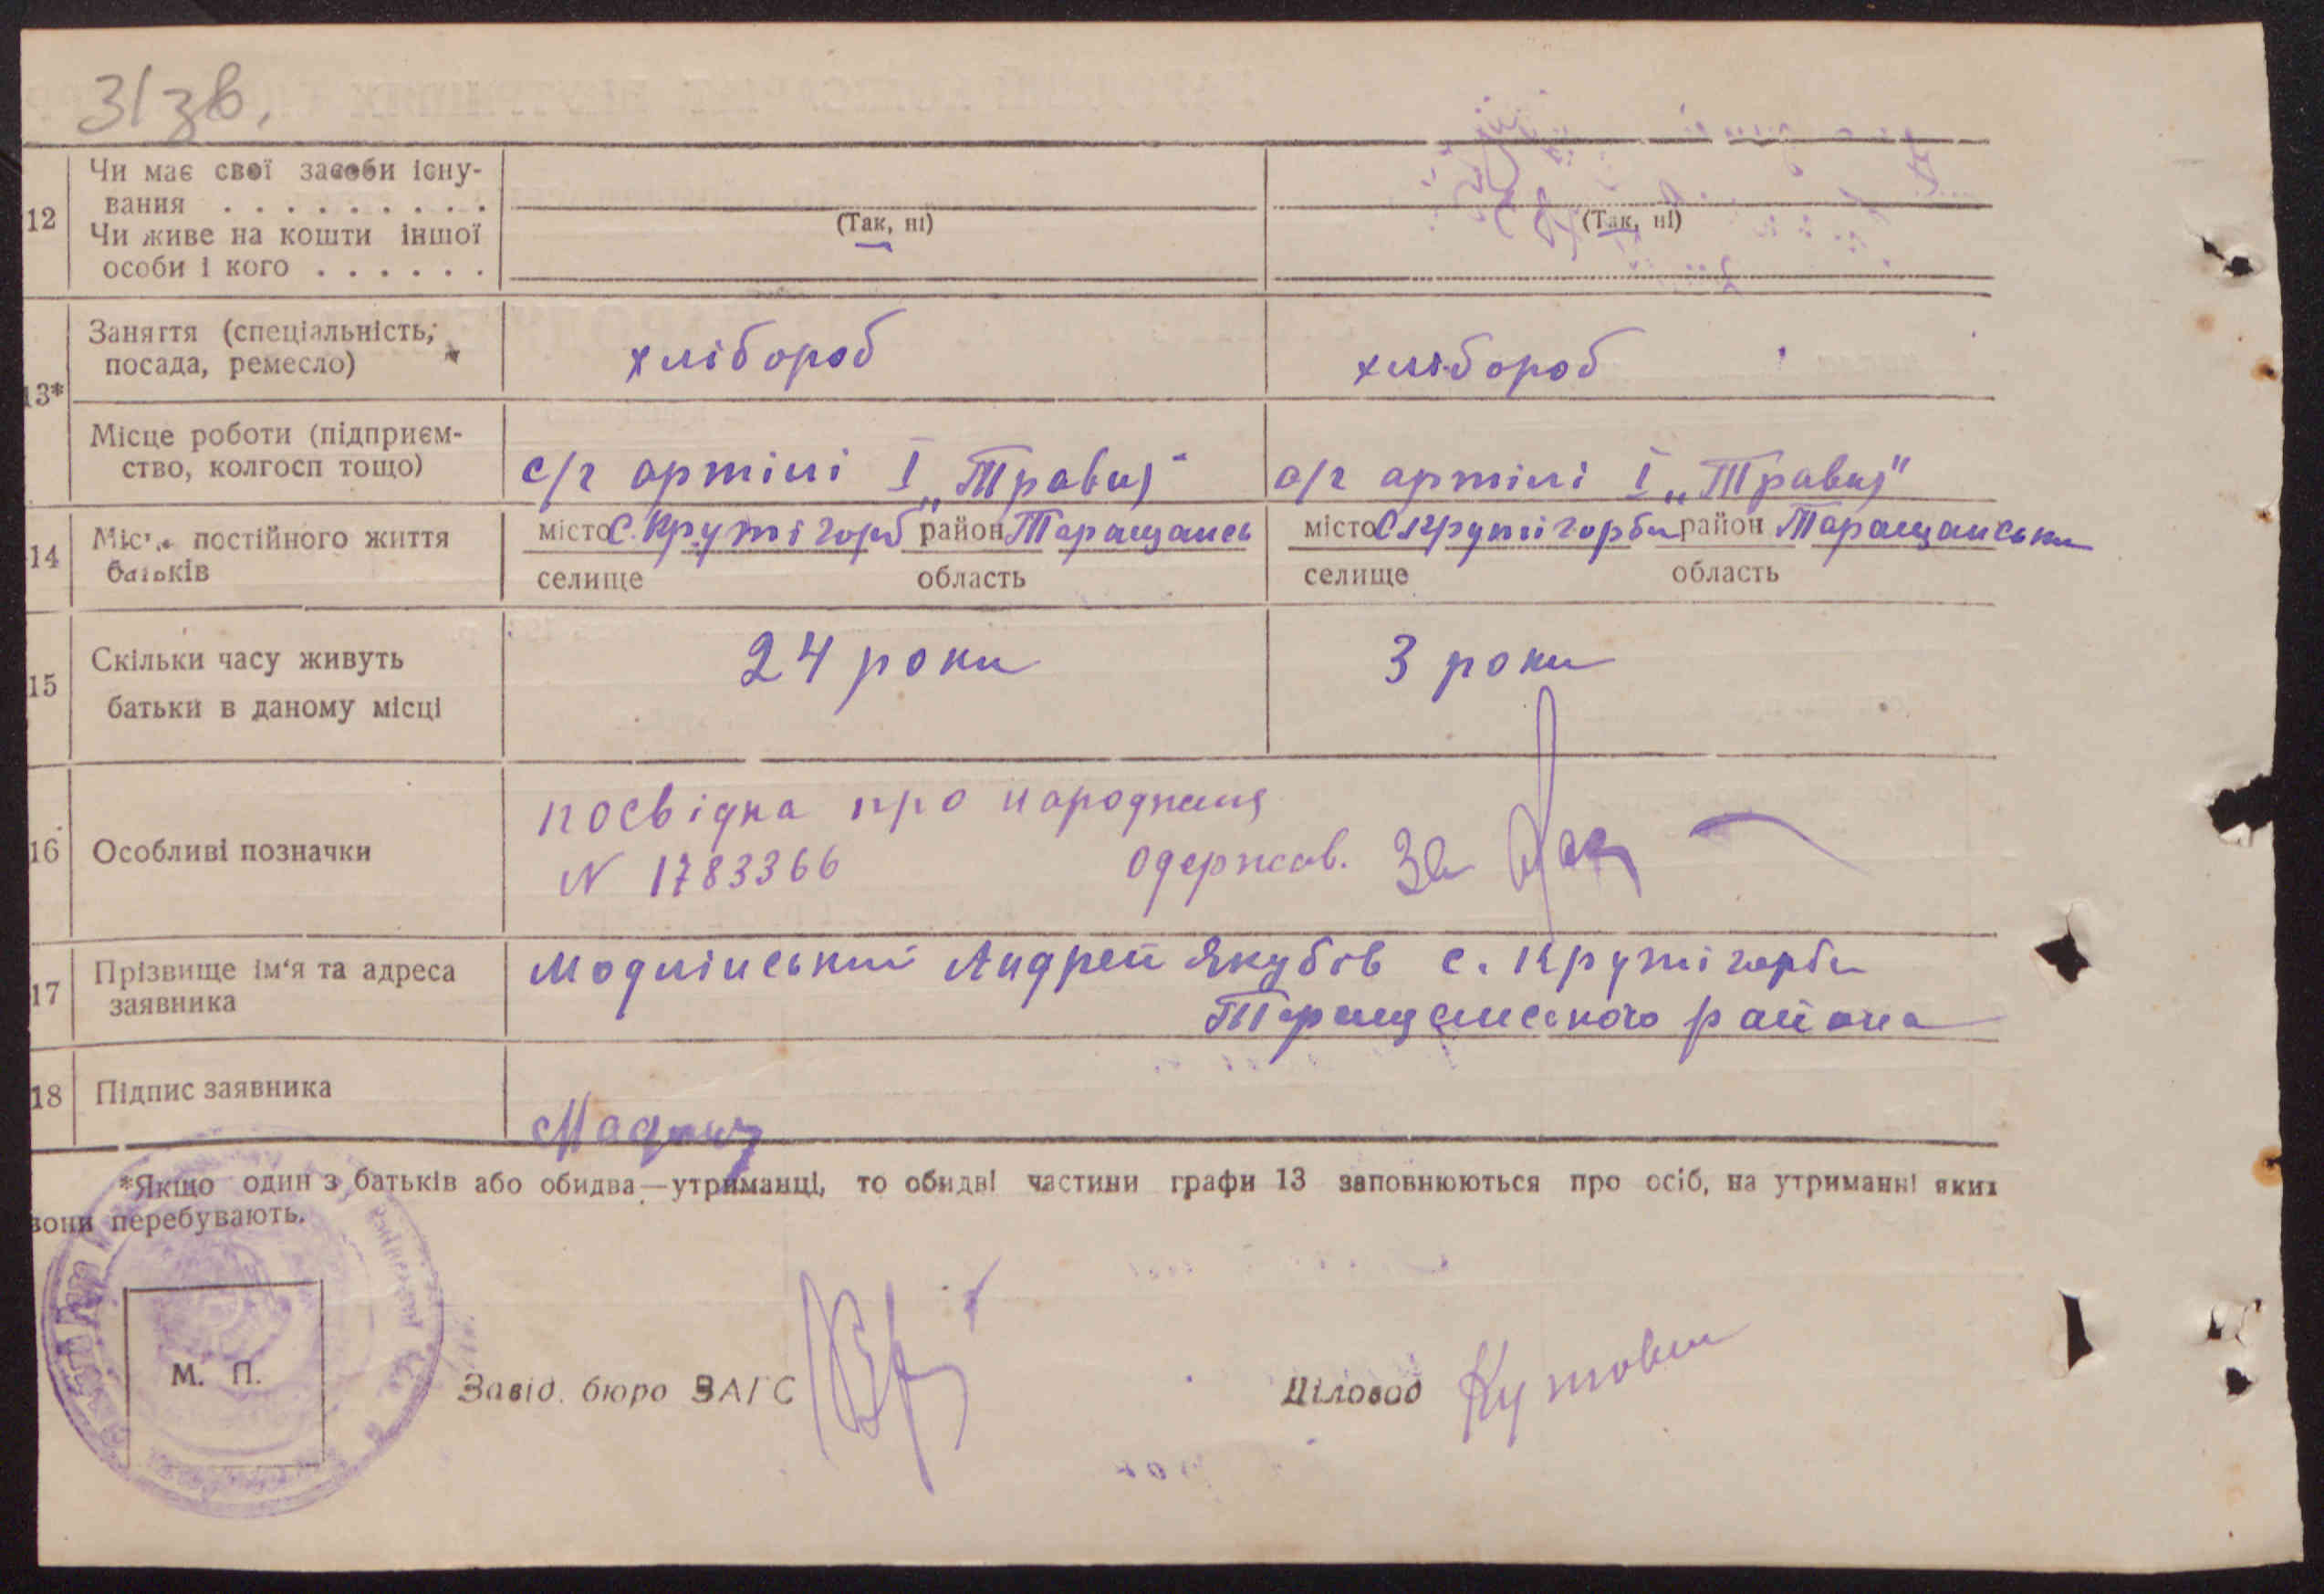 31зв.
12 Чи має свої засоби існу-
вания . . . . . . . . .
(Так, ні) (Так, ні)
Чи живе на кошти іншої
особи і кого . . . . . .
13* Заняття (спеціальність,
посада, ремесло) хлібороб хлібороб
Місце роботи (підприєм-
ство, колгосп тощо) с/г артілі I „Травня" с/г артілі I „Травня"
14 Місце постійного життя місто С. Крутігорб район Таращансь місто С. Крутігорби район Таращанськи
батьків селище область селище область
15 Скільки часу живуть 24 роки 3 роки
батьки в даному місці
16 Особливі позначки посвідка про народження
N 1783366 Одержав. За
17 Прізвище ім'я та адреса Модлінський Андрей Якубов с. Крутігорби
заявника Таращанського района
18 Підпис заявника
*Якщо один з батьків або обидва—утриманці, то обидві частини графи 13 заповнюються про осіб, на утриманні яких
вони перебувають.
М. П. Завід. бюро ЗАГС Діловод Кутовий